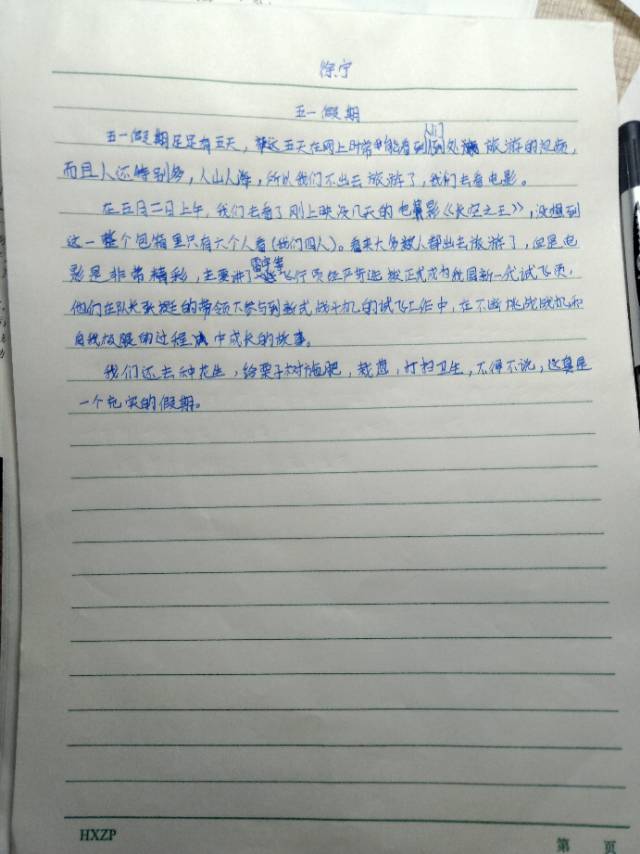 徐宁
五一假期
五一假期足足有五天，这五天在网上时常能看到人们到处旅游的视频，
而且人还特别多，人山人海，所以我们不出去旅游了，我们去看电影。
在五月二日上午，我们去看了刚上映没几天的电影《长空之王》，没想到
这一整个包箱里只有六个人看(我们四人)。看来大多数人都出去旅游了，但是电
影是非常精彩，主要讲了雷宇等飞行员经严苛选拔正式成为我国新一代试飞员，
他们在队长张挺的带领下参与到新式战斗机的试飞工作中，在不断挑战战机和
自我极限的过程中成长的故事。
我们还去种花生，给栗子树施肥，栽葱，打扫卫生，不得不说，这真是
一个充实的假期。
HXZP
第 页